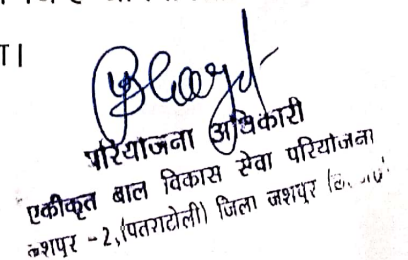 परियोजना अधिकारी
एकीकृत बाल विकास सेवा परियोजना
जशपुर -2,(पतराटोली) जिला जशपुर